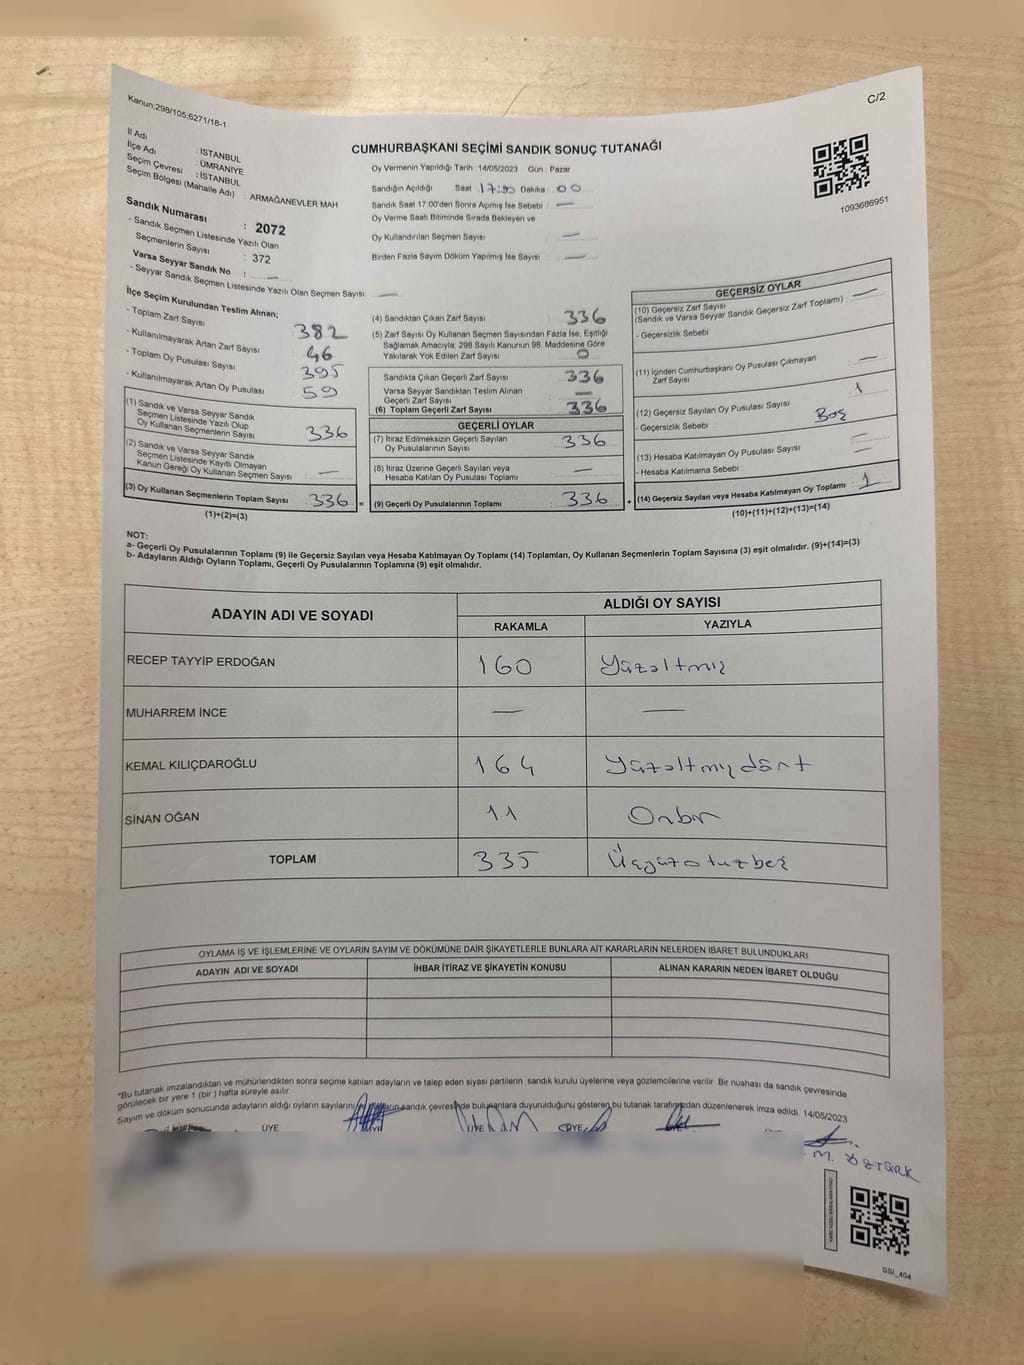 Kanun:298/105,6271/18-1
C/2
CUMHURBAŞKANI SEÇİMİ SANDIK SONUÇ TUTANAĞI
İl Adı : İSTANBUL
İlçe Adı : ÜMRANİYE
Seçim Çevresi : İSTANBUL
Seçim Bölgesi (Mahalle Adı) : ARMAĞANEVLER MAH
Sandık Numarası : 2072
- Sandık Seçmen Listesinde Yazılı Olan
Seçmenlerin Sayısı : 372
Varsa Seyyar Sandık No : —
- Seyyar Sandık Seçmen Listesinde Yazılı Olan Seçmen Sayısı : —
Oy Vermenin Yapıldığı Tarih : 14/05/2023 Gün : Pazar
Sandığın Açıldığı Saat 17:00 Dakika : 00
Sandık Saat 17:00'den Sonra Açımış İse Sebebi : —
Oy Verme Saati Bitiminde Sırada Bekleyen ve
Oy Kullandırılan Seçmen Sayısı : —
Birden Fazla Sayım Döküm Yapılmış İse Sayısı : —
1093686951
İlçe Seçim Kurulundan Teslim Alınan;
- Toplam Zarf Sayısı : 382
- Kullanılmayarak Artan Zarf Sayısı : 46
- Toplam Oy Pusulası Sayısı : 395
- Kullanılmayarak Artan Oy Pusulası : 59
(1) Sandık ve Varsa Seyyar Sandık
Seçmen Listesinde Yazılı Olup
Oy Kullanan Seçmenlerin Sayısı : 336
(2) Sandık ve Varsa Seyyar Sandık
Seçmen Listesinde Kayıtlı Olmayan
Kanun Gereği Oy Kullanan Seçmen Sayısı : —
(3) Oy Kullanan Seçmenlerin Toplam Sayısı : 336
(1)+(2)=(3)
(4) Sandıktan Çıkan Zarf Sayısı : 336
(5) Zarf Sayısı Oy Kullanan Seçmen Sayısından Fazla İse, Eşitliği
Sağlamak Amacıyla; 298 Sayılı Kanunun 98. Maddesine Göre
Yakılarak Yok Edilen Zarf Sayısı : 0
Sandıkta Çıkan Geçerli Zarf Sayısı : 336
Varsa Seyyar Sandıktan Teslim Alınan
Geçerli Zarf Sayısı : —
(6) Toplam Geçerli Zarf Sayısı : 336
GEÇERLİ OYLAR
(7) İtiraz Edilmeksizin Geçerli Sayılan
Oy Pusulalarının Sayısı : 336
(8) İtiraz Üzerine Geçerli Sayılan veya
Hesaba Katılan Oy Pusulası Toplamı : —
= (9) Geçerli Oy Pusulalarının Toplamı : 336
GEÇERSİZ OYLAR
(10) Geçersiz Zarf Sayısı
(Sandık ve Varsa Seyyar Sandık Geçersiz Zarf Toplamı) : —
- Geçersizlik Sebebi :
(11) İçinden Cumhurbaşkanı Oy Pusulası Çıkmayan
Zarf Sayısı : —
(12) Geçersiz Sayılan Oy Pusulası Sayısı : 1
- Geçersizlik Sebebi : Boş
(13) Hesaba Katılmayan Oy Pusulası Sayısı : —
- Hesaba Katılmama Sebebi : —
+ (14) Geçersiz Sayılan veya Hesaba Katılmayan Oy Toplamı : 1
(10)+(11)+(12)+(13)=(14)
NOT:
a- Geçerli Oy Pusulalarının Toplamı (9) ile Geçersiz Sayılan veya Hesaba Katılmayan Oy Toplamı (14) Toplamları, Oy Kullanan Seçmenlerin Toplam Sayısına (3) eşit olmalıdır. (9)+(14)=(3)
b- Adayların Aldığı Oyların Toplamı, Geçerli Oy Pusulalarının Toplamına (9) eşit olmalıdır.
ADAYIN ADI VE SOYADI
ALDIĞI OY SAYISI
RAKAMLA YAZIYLA
RECEP TAYYİP ERDOĞAN 160 Yüzaltmış
MUHARREM İNCE — —
KEMAL KILIÇDAROĞLU 164 Yüzaltmışdört
SİNAN OĞAN 11 Onbir
TOPLAM 335 Üçyüzotuzbeş
OYLAMA İŞ VE İŞLEMLERİNE VE OYLARIN SAYIM VE DÖKÜMÜNE DAİR ŞİKAYETLERLE BUNLARA AİT KARARLARIN NELERDEN İBARET BULUNDUKLARI
ADAYIN ADI VE SOYADI İHBAR İTİRAZ VE ŞİKAYETİN KONUSU ALINAN KARARIN NEDEN İBARET OLDUĞU
*Bu tutanak imzalandıktan ve mühürlendikten sonra seçime katılan adayların ve talep eden siyasi partilerin sandık kurulu üyelerine veya gözlemcilerine verilir. Bir nüshası da sandık çevresinde
görülecek bir yere 1 (bir ) hafta süreyle asılır.
Sayım ve döküm sonucunda adayların aldığı oyların sayılarını sandık çevresinde bulunanlara duyurulduğunu gösteren bu tutanak tarafımızdan düzenlenerek imza edildi. 14/05/2023
ÜYE
M. ÖZTÜRK
SSI_404